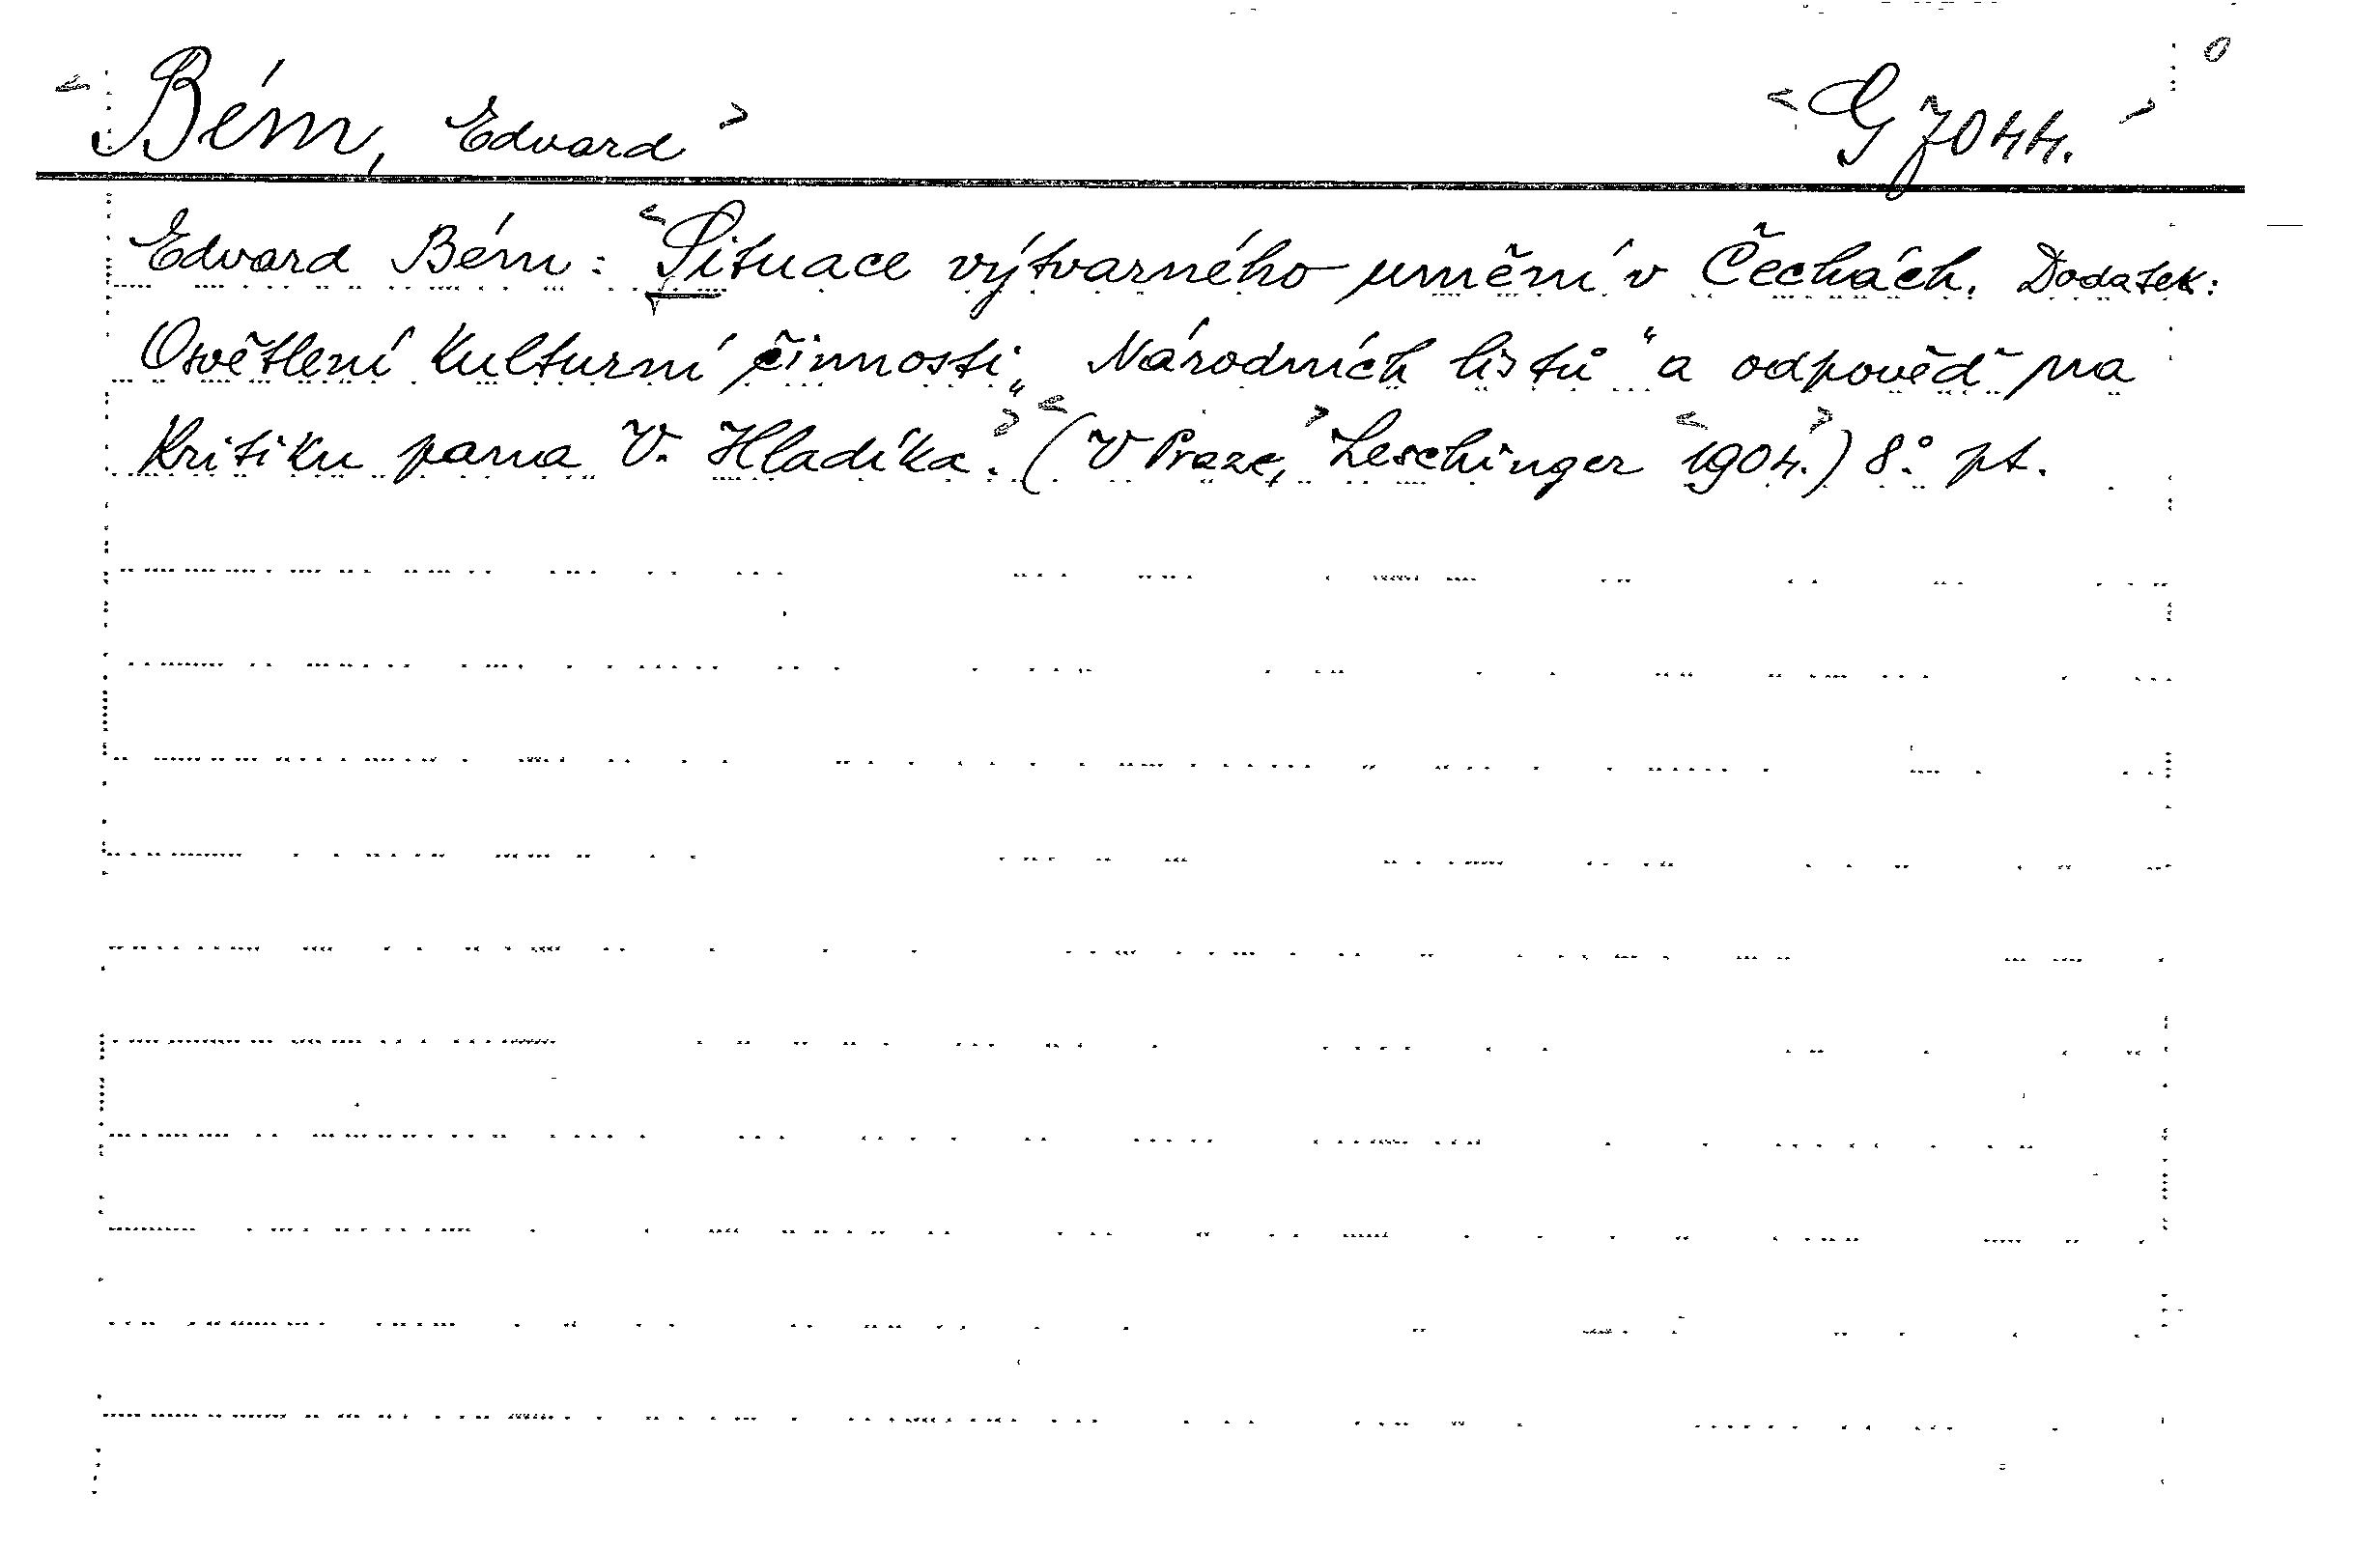 <Bém, Edvard> <G 7044.> 0
Edvard Bém: <Situace výtvarného umění v Čechách. Dodatek:
Osvětlení kulturní činnosti „Národních listů“ a odpověď na
kritiku pana V. Hladíka.> <(V Praze,> Leschinger <1904.>) 8° pt.